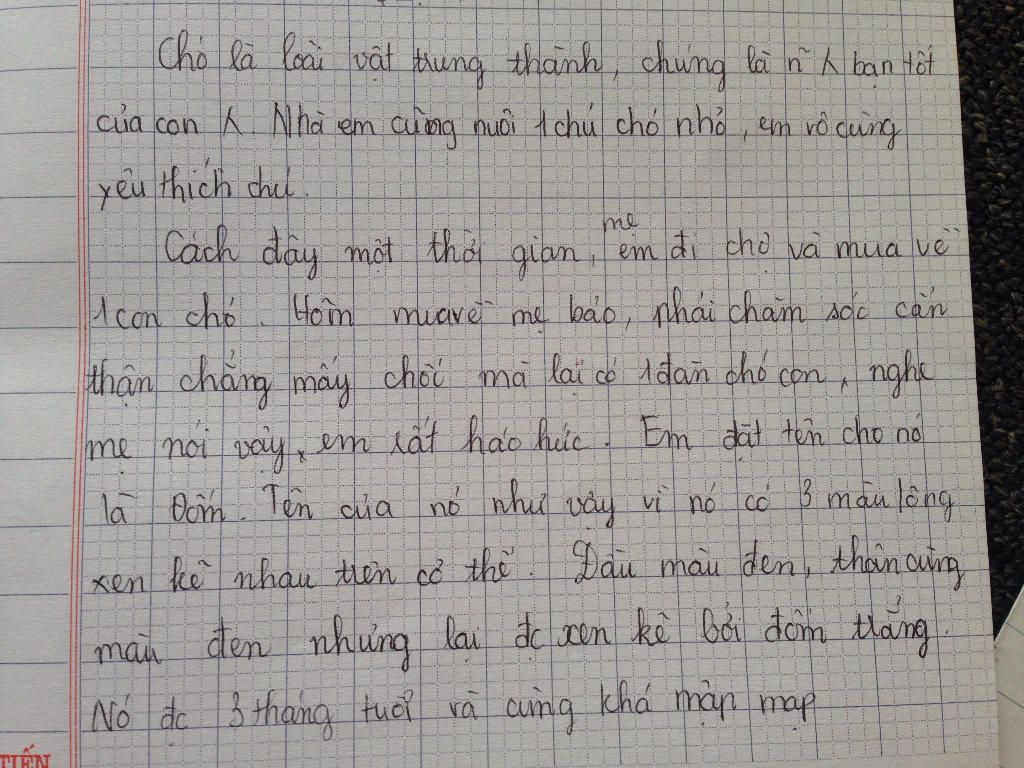 Chó là loài vật trung thành, chúng là n~ λ bạn tốt
của con λ. Nhà em cũng nuôi 1 chú chó nhỏ, em vô cùng
yêu thích chú.
Cách đây một thời gian, mẹ em đi chợ và mua về
1 con chó. Hôm mua về mẹ bảo, phải chăm sóc cẩn
thận chẳng mấy chốc mà lại có 1 đàn chó con, nghe
mẹ nói vậy, em rất háo hức. Em đặt tên cho nó
là Đốm. Tên của nó như vậy vì nó có 3 màu lông
xen kẽ nhau trên cơ thể. Đầu màu đen, thân cũng
màu đen nhưng lại đc xen kẽ bởi đốm trắng.
Nó đc 3 tháng tuổi và cũng khá mập mạp
TIẾN